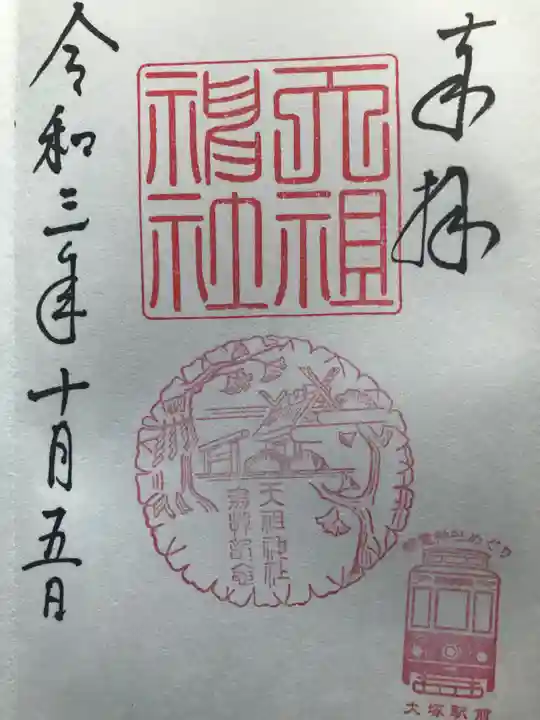 奉拝
天祖
神社
天祖神社
参拝記念
令和三年十月五日
都電沿線めぐり
大塚駅前